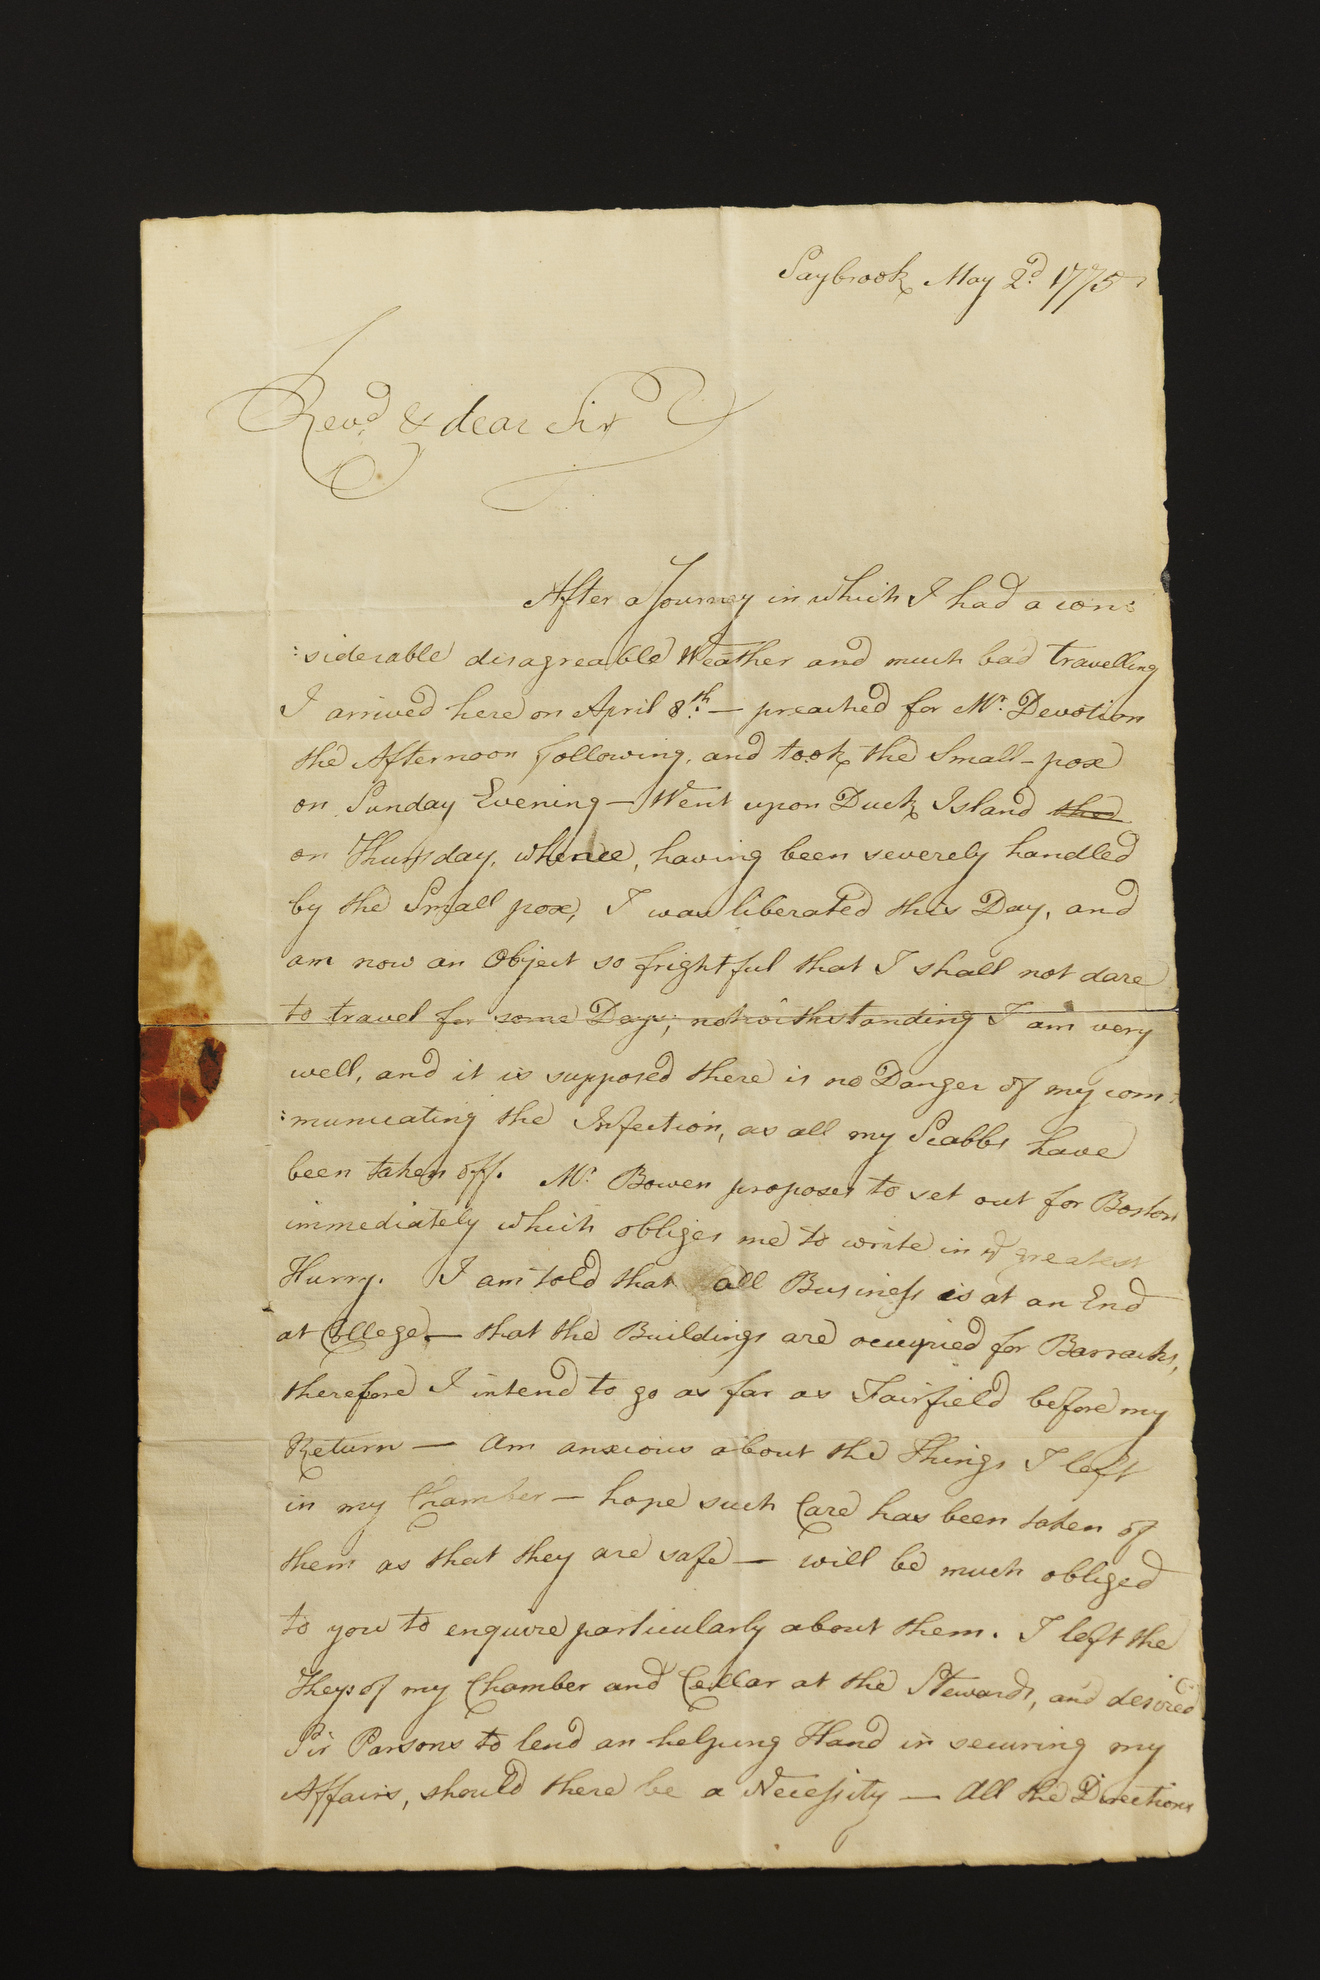 Saybrook May 2d. 1775
Revd. & dear Sir
After a Journey in which I had a con:
:siderable disagreable Weather and much bad travelling
I arrived here on April 8th. — preached for Mr. Devotion
the Afternoon following, and took the Small-pox
on Sunday Evening — Went upon Duck Island the
on Thursday, whence, having been severely handled
by the Small pox, I was liberated this Day, and
am now an Object so frightful that I shall not dare
to travel for some Days; notwithstanding I am very
well, and it is supposed there is no Danger of my com:
:municating the Infection, as all my Scabbs have
been taken off. Mr. Bowen proposes to set out for Boston
immediately which obliges me to write in ye greatest
Hurry. I am told that all Business is at an End
at College — that the Buildings are occupied for Barracks,
therefore I intend to go as far as Fairfield before my
Return — Am anxious about the Things I left
in my Chamber — hope such Care has been taken of
them as that they are safe — will be much obliged
to you to enquire particularly about them. I left the
Keys of my Chamber and Cellar at the Stewards, and desired
Sir Parsons to lend an helping Hand in securing my
Affairs, should there be a Necessity — All the Directions